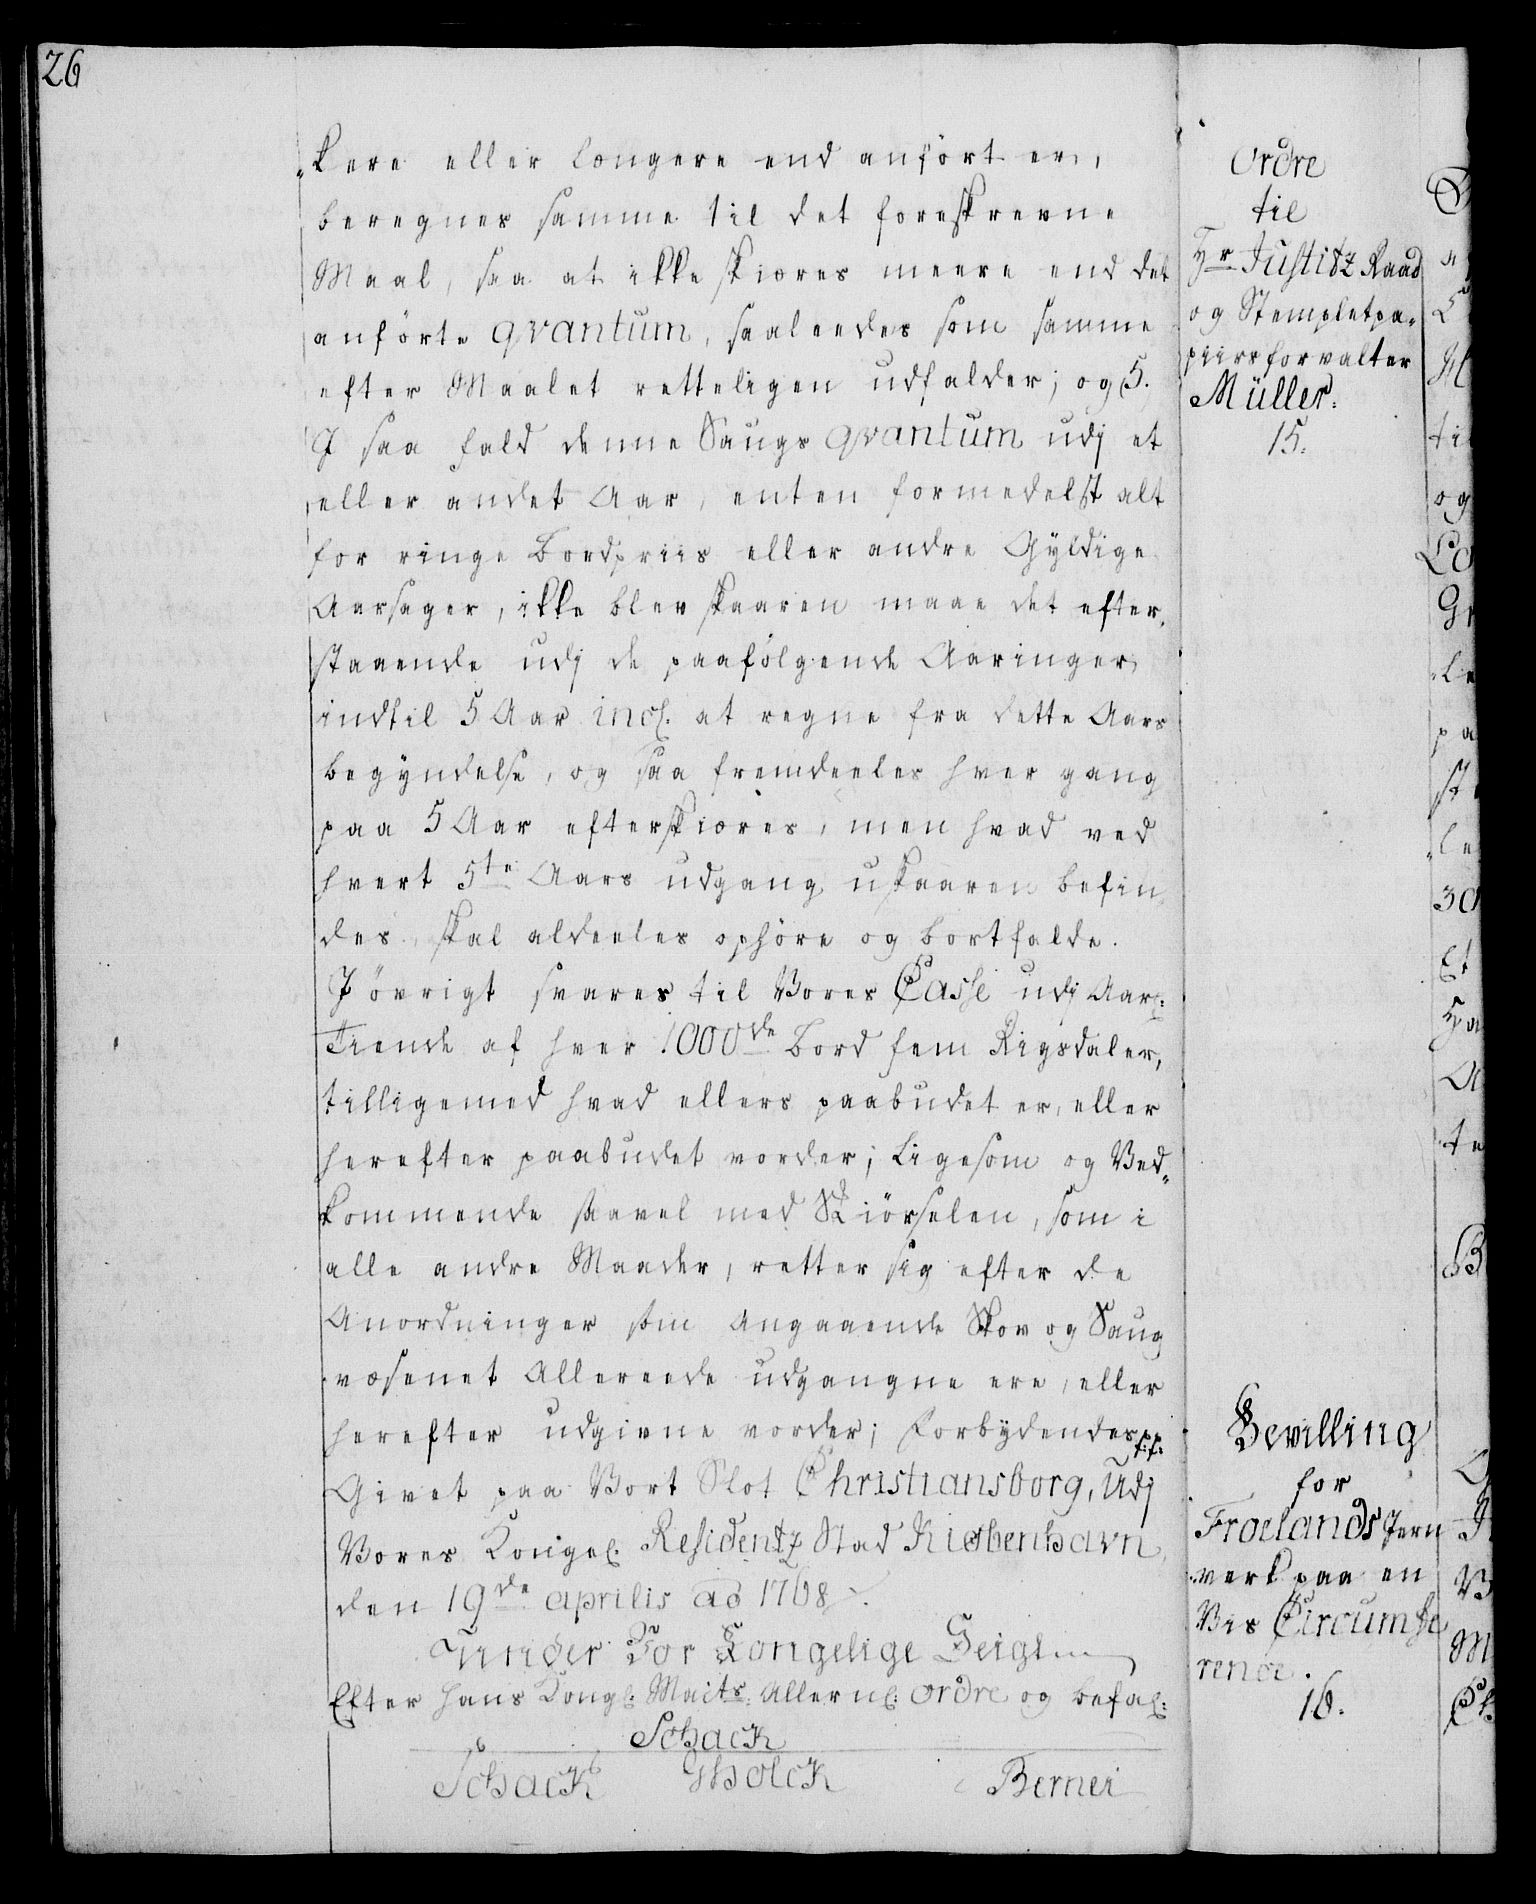 26
„kere eller længere end anført er,
beregnes samme til det foreskrevne
Maal, saa at ikke skiæres meere end det
anförte qvantum, saaleedes som samme
efter Maalet retteligen udfalder; og 5.
I saa fald denne Saugs qvantum udj et
eller andet Aar, enten formedelst alt
for ringe Bordpriis eller andre Gyldige
Aarsager, ikke blev skaaren maae det efter,
staaende udj de paafølgende Aaringer
indtil 5 Aar incl. at regne fra dette Aars
begyndelse, og saa fremdeeles hver gang
paa 5 Aar efterskiæres, men hvad ved
hvert 5te Aars udgang uskaaren befin
des, skal aldeeles ophöre og bortfalde.
I övrigt svares til Vores Casse udj Aarl:
Tiende af hver 1000de Bord fem Rigsdaler,
tilligemed hvad ellers paabudet er, eller
herefter paabudet vorder; Ligesom og Ved„
kommende saavel med Skiörselen, som i
alle andre Maader, retter sig efter de
Anordninger som angaaende Skov og Saug
væsenet Allereede udgangne ere, eller
herefter udgivne vorder; Forbydendes p.p.
Givet paa Vort Slot Christiansborg, Udj
Vores Kongel. Residentz Stad Kiøbenhavn,
den 19de aprilis ao 1768.
Under Vor Kongelige Seigl
Efter Hans Kongl: Maits: Allern: ordre og befal:
Schack
Schack Gholck Berner
Ordre
til
Hr Justitz Raad
og Stempletpa„
piirsforvalter
Müller.
15.
Bevilling
for
Froelands Jern
verk paa en
Vis Circumfe
rence.
16.